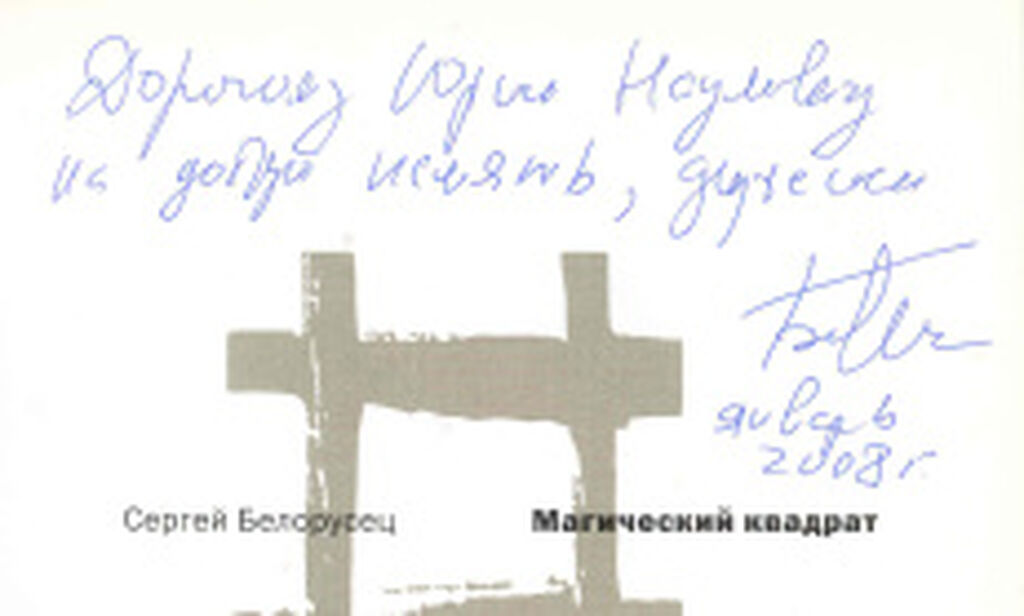 Дорогому Юрию Наумовичу
на добрую память, дружески
январь
2008 г.
Сергей Белорусец Магический квадрат